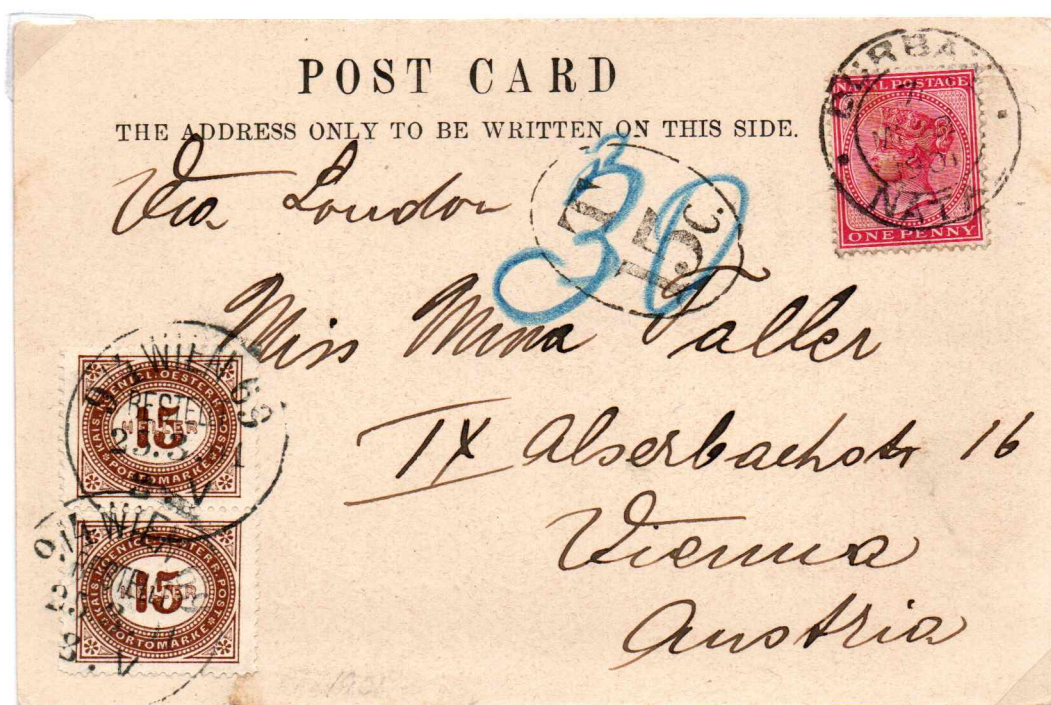 POST CARD
THE ADDRESS ONLY TO BE WRITTEN ON THIS SIDE.
DURBAN
NATAL
NATAL POSTAGE
ONE PENNY
Via London
T
15 c.
30
Miss Mina Valler
IX Alserbachstr 16
Vienna
Austria
9/1 WIEN 69
BESTELLT
KAIS. KOENIGL. OESTERR. POST
15
HELLER
PORTOMARKE
9/1 WIEN
KAIS. KOENIGL. OESTERR. POST
15
HELLER
PORTOMARKE